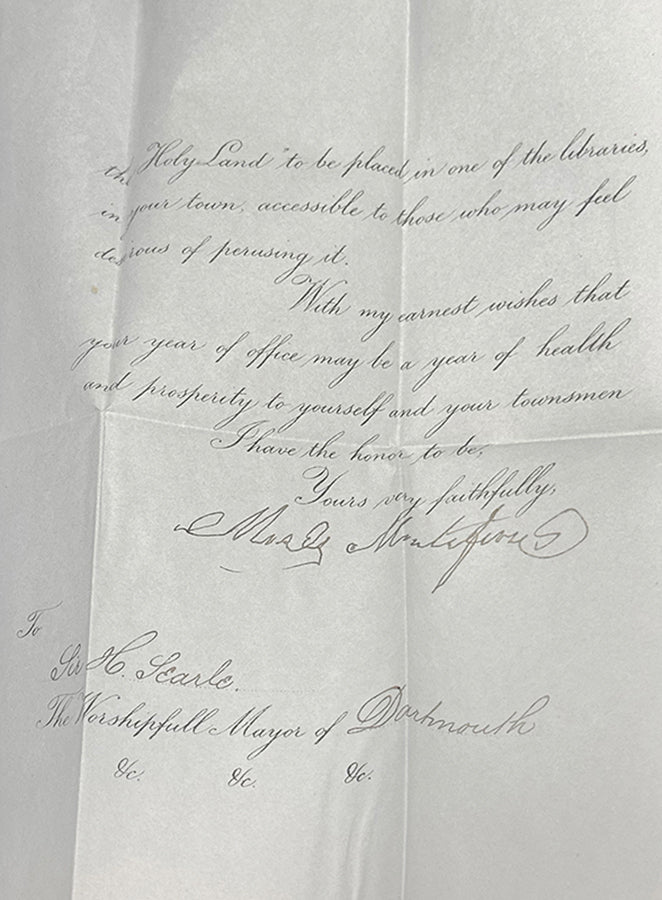 the Holy Land" to be placed in one of the libraries,
in your town, accessible to those who may feel
desirous of perusing it.
With my earnest wishes that
your year of office may be a year of health
and prosperity to yourself and your townsmen
I have the honor to be,
Yours very faithfully,
Moses Montefiore
To
Sir H. Searle.
The Worshipfull Mayor of Dartmouth
&c. &c. &c.